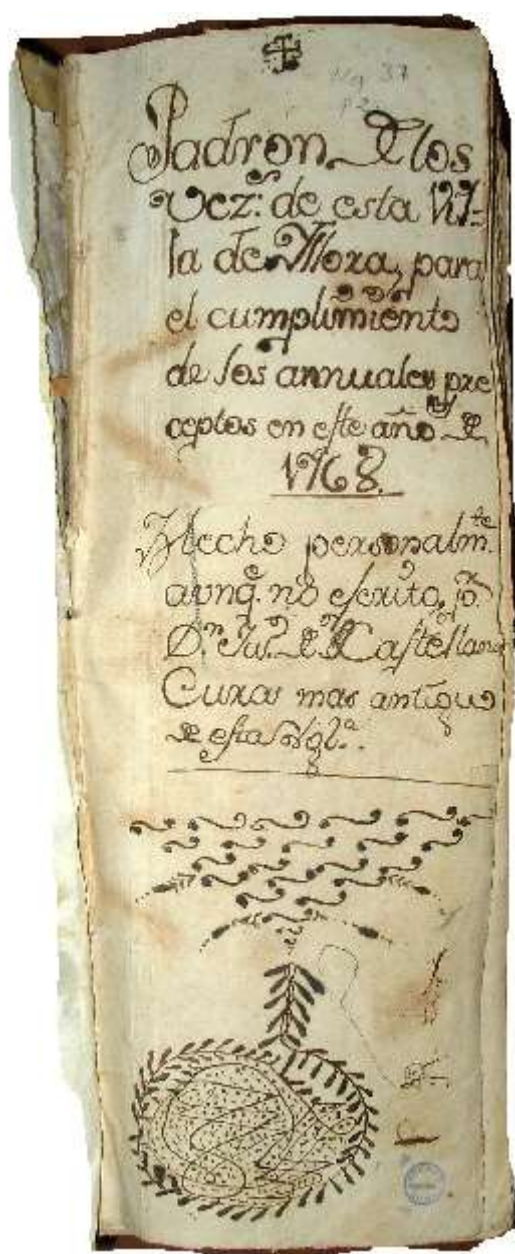 Padron de los
Vez.os de esta Vi-
lla de Mora, para
el cumplimiento
de los annuales pre
ceptos en este año de
1768.
Hecho personalm.te
aunq.e no escrito, p.r
D.n Ju.o de Castellano
Cura mas antiguo
de esta Ygl.a